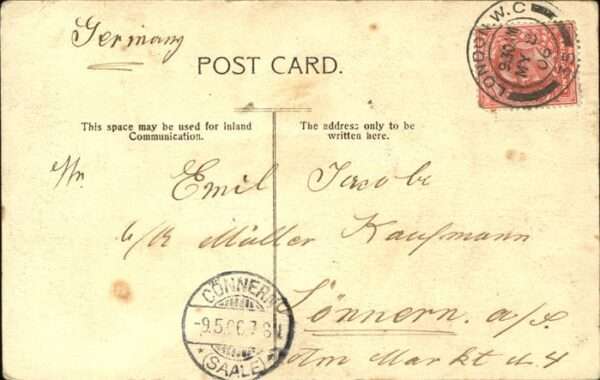 Germany
POST CARD.
LONDON. W.C
9.30 PM
MY
06
35
This space may be used for inland
Communication.
The address only to be
written here.
Emil Jacobi
c/o Müller Kaufmann
Cönnern. a/S.
Am Markt u. 4
CÖNNERN
-9.5.06.7-8
*(SAALE)*